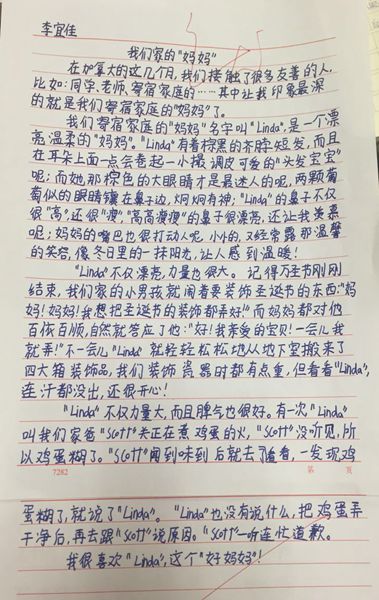 李宜佳
我们家的"妈妈"
在加拿大的这几个月,我们接触了很多友善的人,
比如:同学、老师、寄宿家庭的……其中让我印象最深
的就是我们寄宿家庭的"妈妈"了。
我们寄宿家庭的"妈妈"名字叫"Linda",是一个漂
亮温柔的"妈妈"。"Linda"有着棕黑的齐脖短发,而且
在耳朵上面一点会卷起一小撮调皮可爱的"头发宝宝"
呢;而她那棕色的大眼睛才是最迷人的呢,两颗葡
萄似的眼睛镶在鼻子边,炯炯有神;"Linda"的鼻子不仅
很"高",还很"瘦","高高瘦瘦"的鼻子很漂亮,还让我羡慕
呢;妈妈的嘴巴也很打动人呢,小小的,又经常露那温馨
的笑容,像冬日里的一抹阳光,让人感到温暖!
"Linda"不仅漂亮,力量也很大。记得万圣节刚刚
结束,我们家的小男孩就闹着要装饰圣诞节的东西:"妈
妈!妈妈!我想把圣诞节的装饰都弄好!"而妈妈都对他
百依百顺,自然就答应了他:"好!我亲爱的宝贝!一会儿我
就弄!"不一会儿"Linda"就轻轻松松地从地下室搬来了
四大箱装饰品,我们装饰瓷器时都有点重,但看看"Linda",
连汗都没出,还很开心!
"Linda"不仅力量大,而且脾气也很好。有一次,"Linda"
叫我们家爸"Scott"关正在煮鸡蛋的火,"Scott"没听见,所
以鸡蛋糊了。"Scott"闻到味到后就去了查看,一发现鸡
7282 第 页
蛋糊了,就说了"Linda"。"Linda"也没有说什么,把鸡蛋弄
干净后,再去跟"Scott"说原因。"Scott"一听连忙道歉。
我很喜欢"Linda",这个"好妈妈"!